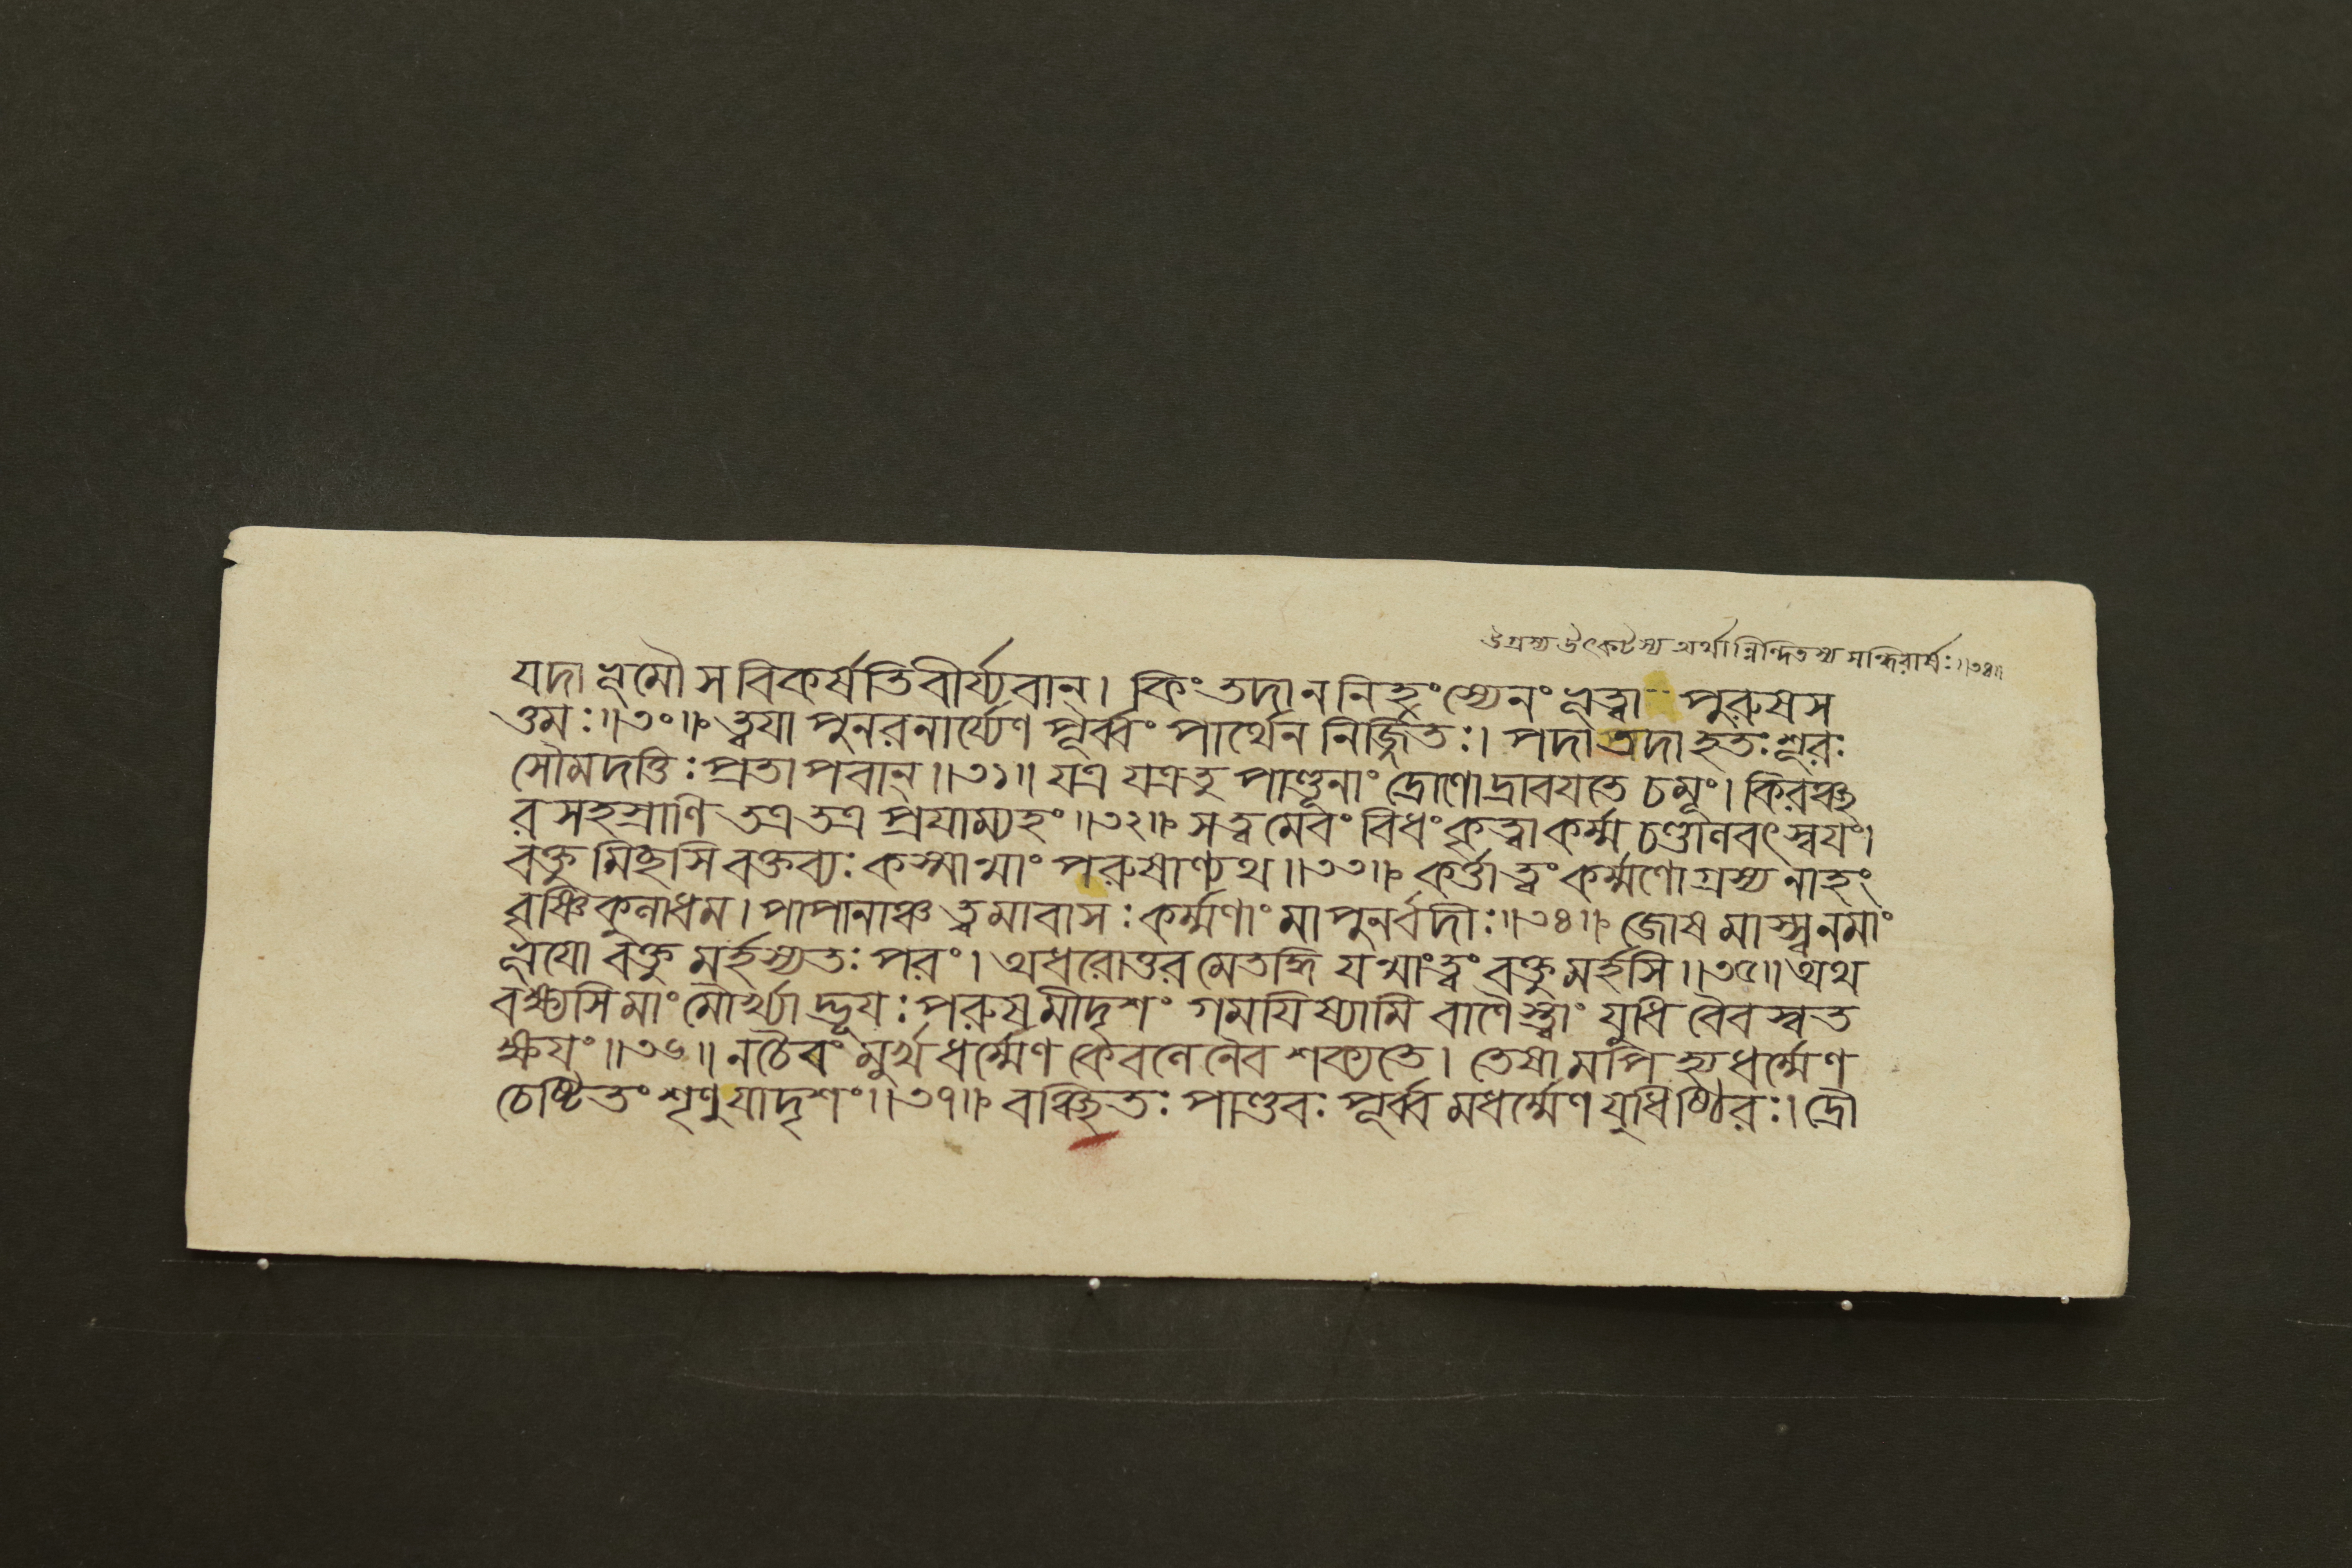 উগ্রস্য উৎকটস্য অর্থান্নিন্দিতস্য সন্ধিরার্ষঃ॥৩৪॥
যদা ভূমৌ স বিকর্ষতি বীর্য্যবান্। কিং তদা ন নিহংস্যেনং ভূত্বা -- পুরুষস
ত্তমঃ॥৩০॥ ত্বযা পুনরনার্য্যেণ পূর্ব্বং পার্থেন নির্জ্জিতঃ। যদা তদা হতঃ শূরঃ
সৌমদত্তিঃ প্রতাপবান্॥৩১॥ যত্র যত্র তু পাণ্ডূনাং দ্রোণো দ্রাবযতে চমূং। কিরঞ্ছ
রসহস্রাণি তত্র তত্র প্রযাম্যহং॥৩২॥ স ত্বমেবং বিধং কৃত্বা কর্ম্ম চণ্ডালবৎ স্বযং।
বক্তুমিচ্ছসি বক্তব্যঃ কস্মান্মাং পরুষাণ্যথ॥৩৩॥ কর্ত্তা ত্বং কর্ম্মণোগ্রস্য নাহং
বৃষ্ণিকুলাধম। পাপানাঞ্চ ত্বমাবাসঃ কর্ম্মণাং মা পুনর্বদীঃ॥৩৪॥ জোষমাস্স্ব ন মাং
ভূযো বক্তুমর্হস্যতঃ পরং। অধরোত্তরমেতদ্ধি যন্মাং ত্বং বক্তুমর্হসি॥৩৫॥ অথ
বক্ষ্যসি মাং মৌর্খ্যাদ্ভূযঃ পরুষমীদৃশং গমযিষ্যামি বাণৈস্ত্বাং যুধি বৈবস্বত
ক্ষযং॥৩৬॥ ন চৈবং মূর্খ ধর্ম্মেণ কেবলেনৈব শক্যতে। তেষামপি হ্যধর্ম্মেণ
চেষ্টিতং শৃণু যাদৃশং॥৩৭॥ বঞ্চিতঃ পাণ্ডবঃ পূর্ব্বমধর্ম্মেণ যুধিষ্ঠিরঃ। দ্রৌ